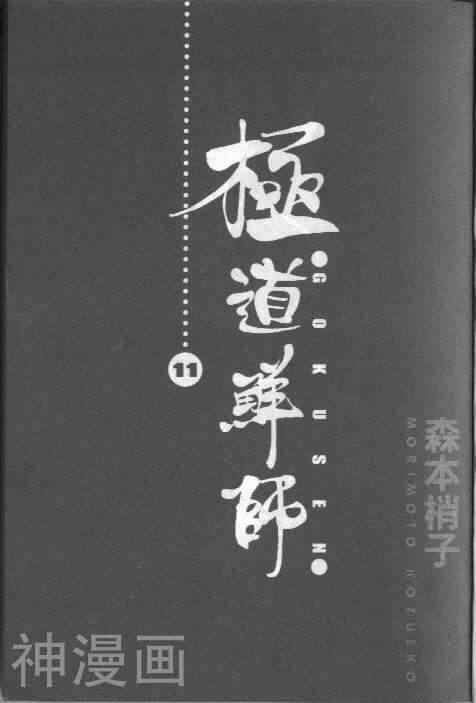 極道鮮師
GOKUSEN
11
森本梢子
MORIMOTO KOZUEKO
神漫画